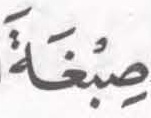 صِبْغَةَ